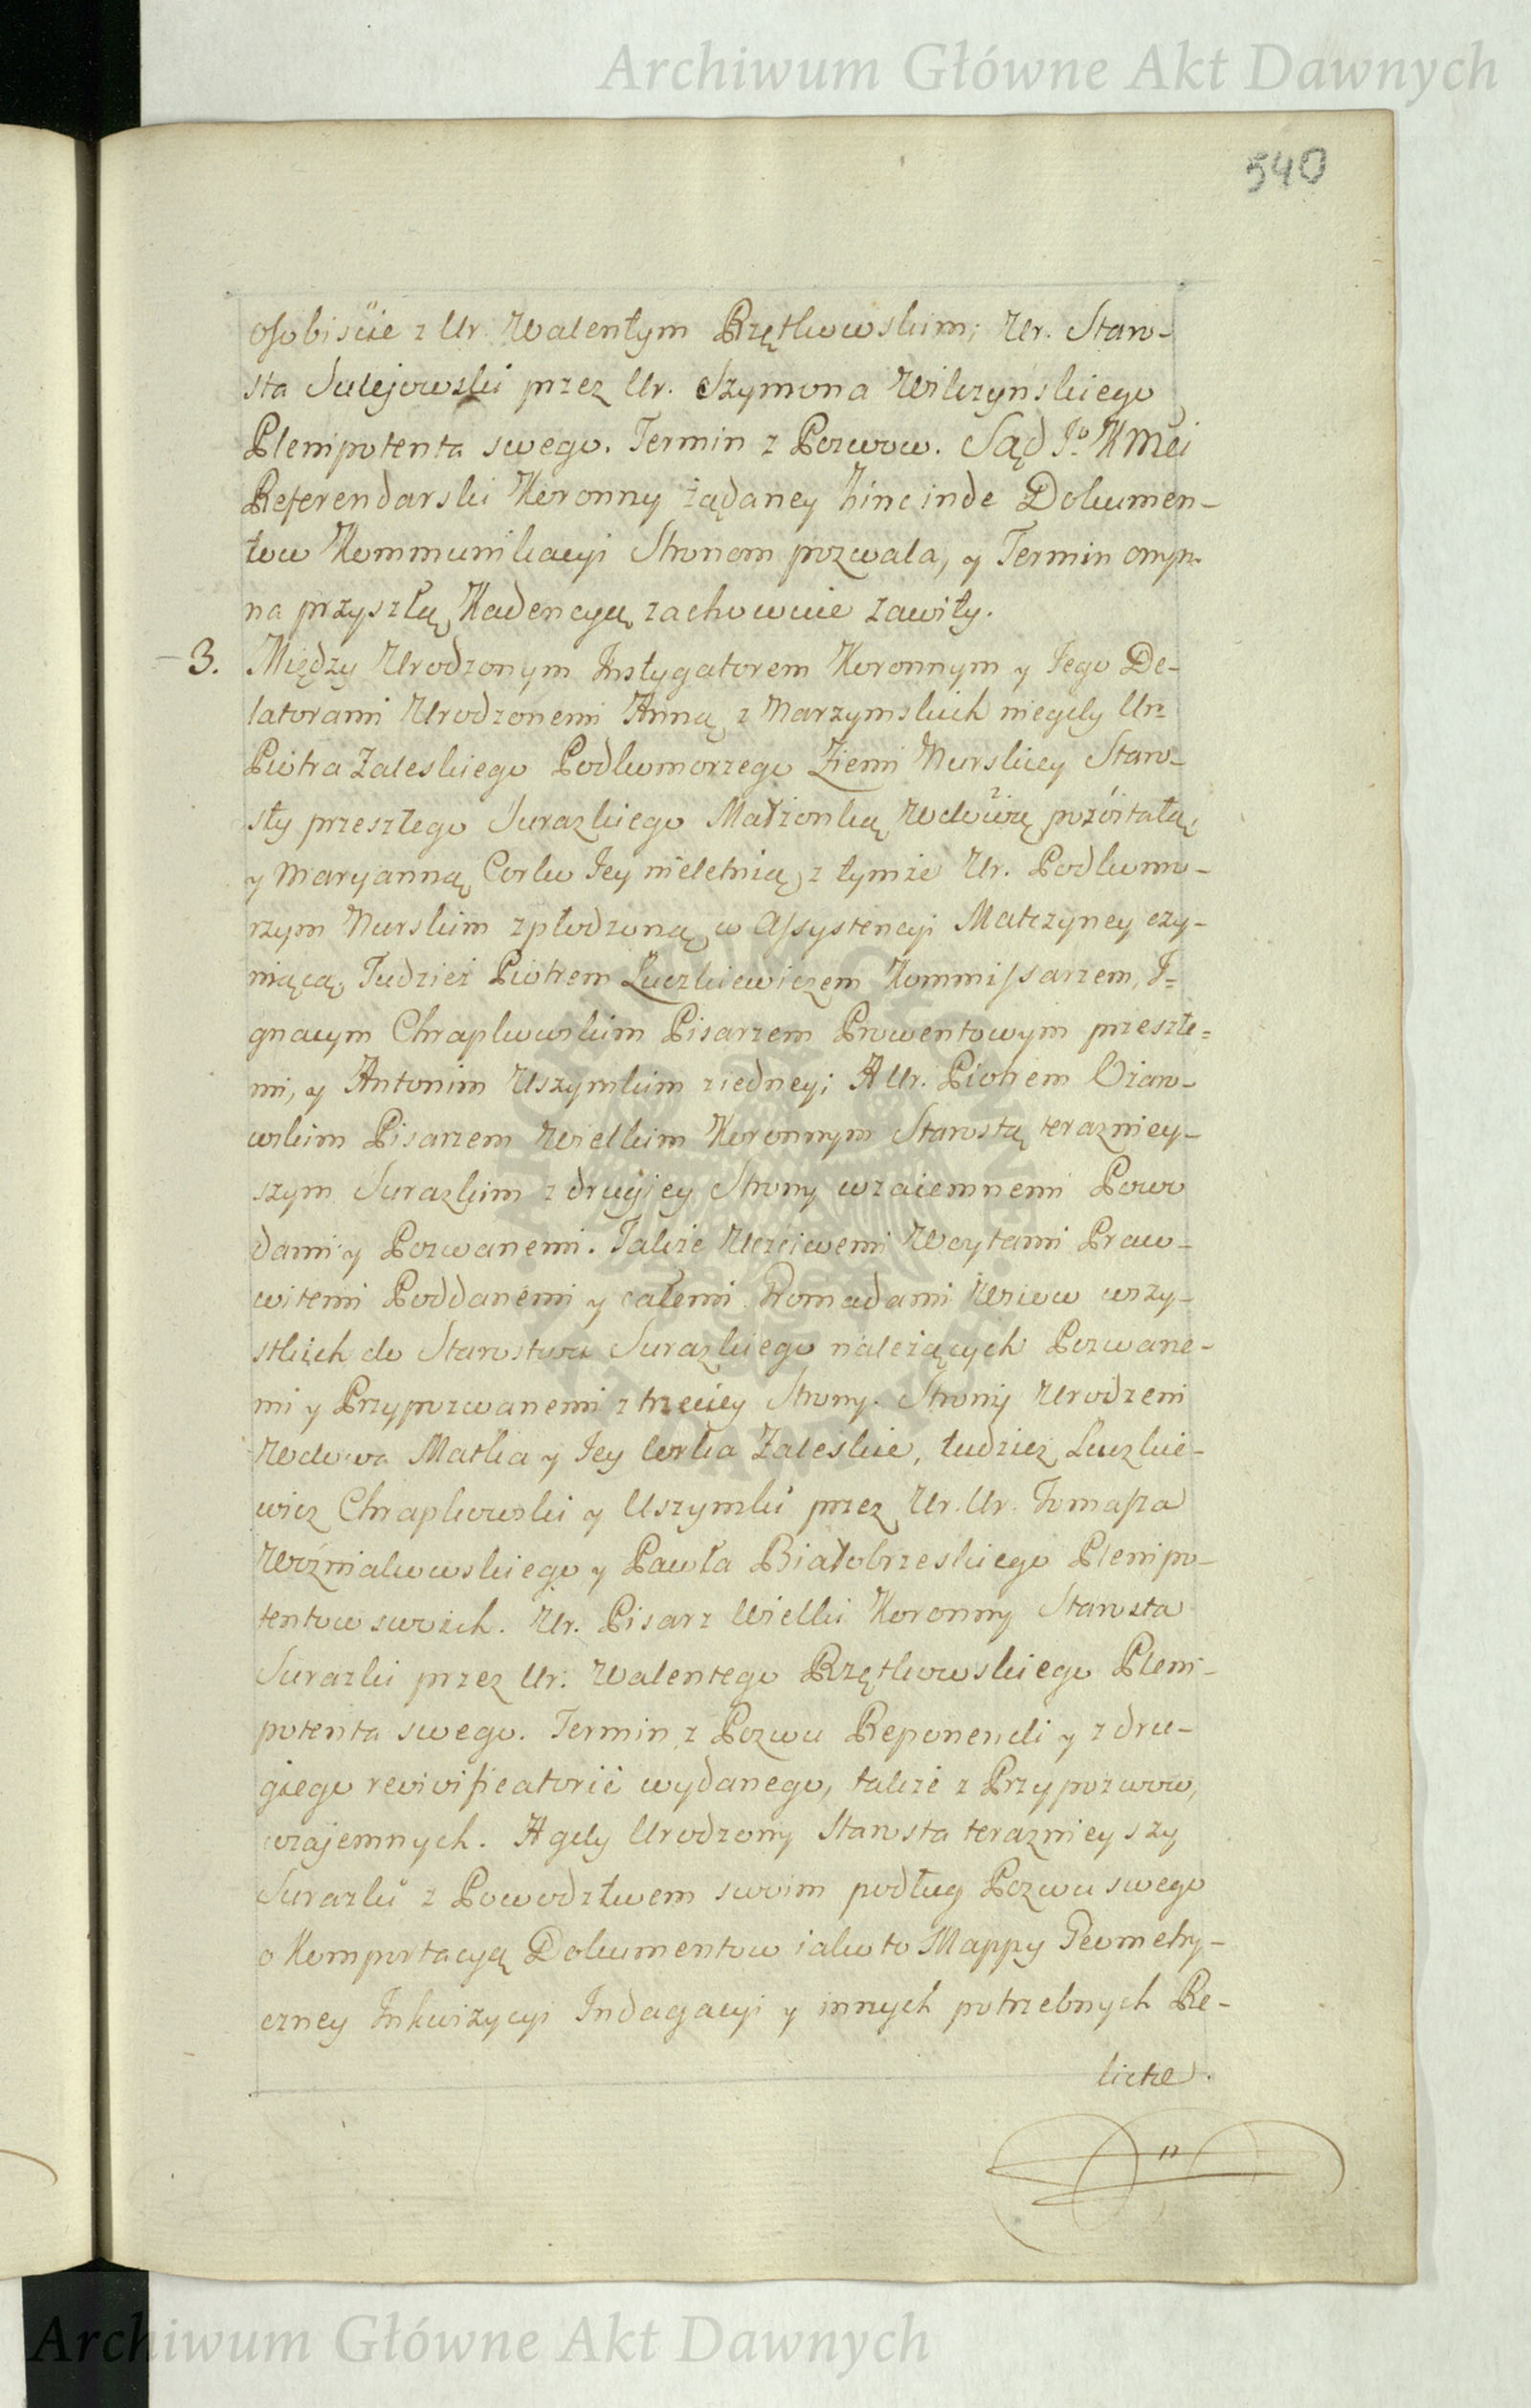 Archiwum Główne Akt Dawnych
540
osobiście z Ur. Walentym Rzętkowskim; Ur. Staro-
sta Sulejowski przez Ur. Szymona Wilczyńskiego
Plenipotenta swego. Termin z Pozwow. Sąd Jo KMci
Referendarski Koronny żądaney hinc inde Dokumen-
tow Kommunikacyi Stronom pozwala, y Termin onym
na przyszłą Kadencyą zachowuie zawity.
3. Między Urodzonym Instygatorem Koronnym y Jego De-
latorami Urodzonemi Anną z Marzymskich niegdy Ur=
Piotra Zaleskiego Podkomorzego Ziemi Nurskiey Staro-
sty przeszłego Surazkiego Małżonką Wdową pozostałą
y Maryanną Corką Jey nieletnią z tymże Ur. Podkomo-
rzym Nurskim zpłodzoną w Assystencyi Matczyney czy-
niącą, Tudzież Piotrem Łuczkiewiczem Kommissarzem, I=
gnacym Chrapkowskim Pisarzem Prowentowym przeszłe=
mi, y Antonim Uszymkim z iedney; A Ur. Piotrem Ożaro-
wskim Pisarzem Wielkim Koronnym Starostą terazniey-
szym Surazkim z drugiey Strony wzaiemnemi Powo
dami y Pozwanemi. Także Uczciwemi Woytami Praco-
witemi Poddanemi y całemi Gromadami Wsiow wszy-
stkich do Starostwa Surazkiego należących Pozwane-
mi y Przypozwanemi z trzeciey Strony. Strony Urodzeni
Wdowa Matka y Jey Corka Zaleskie, tudzież Łuczkie-
wicz Chrapkowski y Uszymki przez Ur. Ur. Tomasza
Woźniakowskiego y Pawła Białobrzeskiego Plenipo-
tentow swoich. Ur. Pisarz Wielki Koronny Starosta
Surazki przez Ur. Walentego Rzętkowskiego Pleni-
potenta swego. Termin z Pozwu Reponendi y z dru-
giego revivificatorie wydanego, także z Przypozwow,
wzajemnych. A gdy Urodzony Starosta teraznieyszy
Surazki z Powodztwem swoim podług Pozwu swego
o Komportacyą Dokumentow iako to Mappy Geometry-
czney Inkwizycyi Indagacyi y innych potrzebnych Re-
lictre.
Archiwum Główne Akt Dawnych